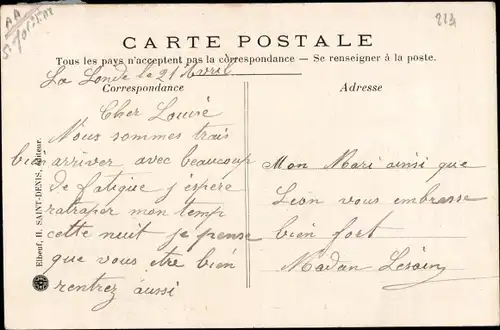 AA
223
CARTE POSTALE
Tous les pays n'acceptent pas la correspondance — Se renseigner à la poste.
La Londe le 21 Avril
Correspondance
Adresse
Cher Louise
Nous sommes trais
bien arriver avec beaucoup
de fatigue j'espere
ratraper mon temp
cette nuit je pense
que vous etre bien
rentrez aussi
Mon Mari ainsi que
Leon vous embresse
bien fort
Madan
Elbeuf, H. SAINT-DENIS, Editeur.